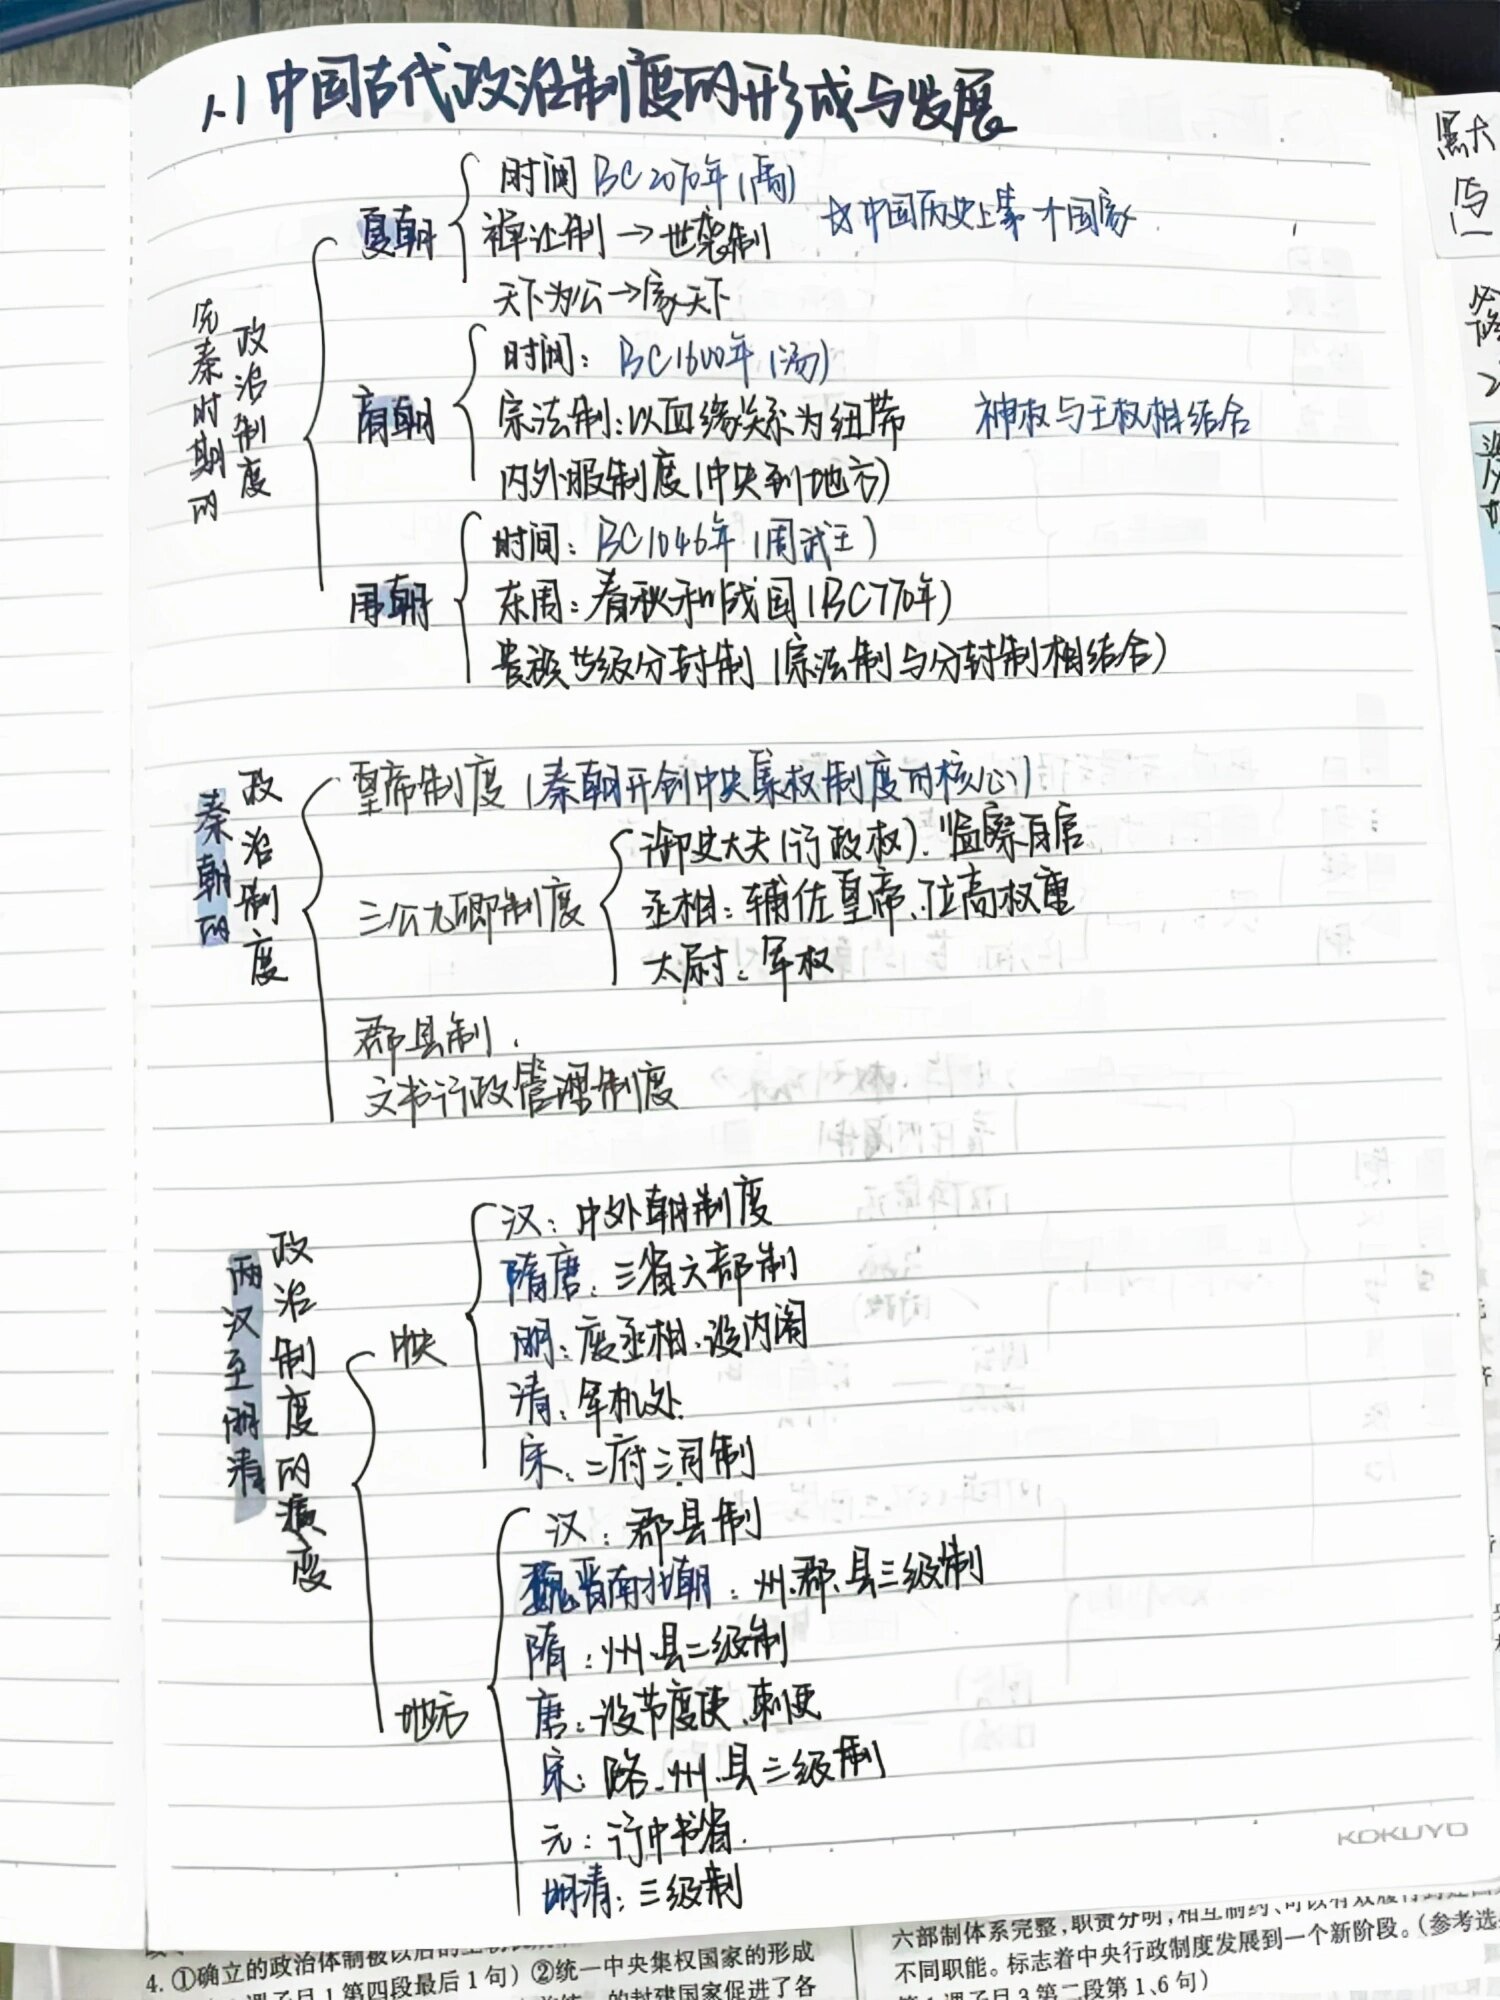 1.1 中国古代政治制度的形成与发展
先秦时期的
政治制度
夏朝
时间 BC2070年(禹)
禅让制→世袭制
☆中国历史上第一个国家
天下为公→家天下
商朝
时间：BC1600年(汤)
宗法制：以血缘关系为纽带
神权与王权相结合
内外服制度(中央到地方)
周朝
时间：BC1046年(周武王)
东周：春秋和战国(BC770年)
贵族等级分封制(宗法制与分封制相结合)
秦朝的
政治制度
皇帝制度(秦朝开创中央集权制度的核心)
三公九卿制度
御史大夫(行政权)、监察百官
丞相：辅佐皇帝、位高权重
太尉：军权
郡县制.
文书行政管理制度
两汉至明清
政治制度的演变
中央
汉：中外朝制度
隋唐：三省六部制
明：废丞相、设内阁
清：军机处
宋：二府三司制
地方
汉：郡县制
魏晋南北朝：州、郡、县三级制
隋：州、县二级制
唐：设节度使、刺使
宋：路、州、县三级制
元：行中书省.
明清：三级制
KOKUYO
4.①确立的政治体制被以后的
②统一中央集权国家的形成
课子目1第四段最后1句)
的封建国家促进了各
六部制体系完整,职责分明,相互制约、可以有效履行
不同职能。标志着中央行政制度发展到一个新阶段。(参考选
课子目3第二段第1、6句)